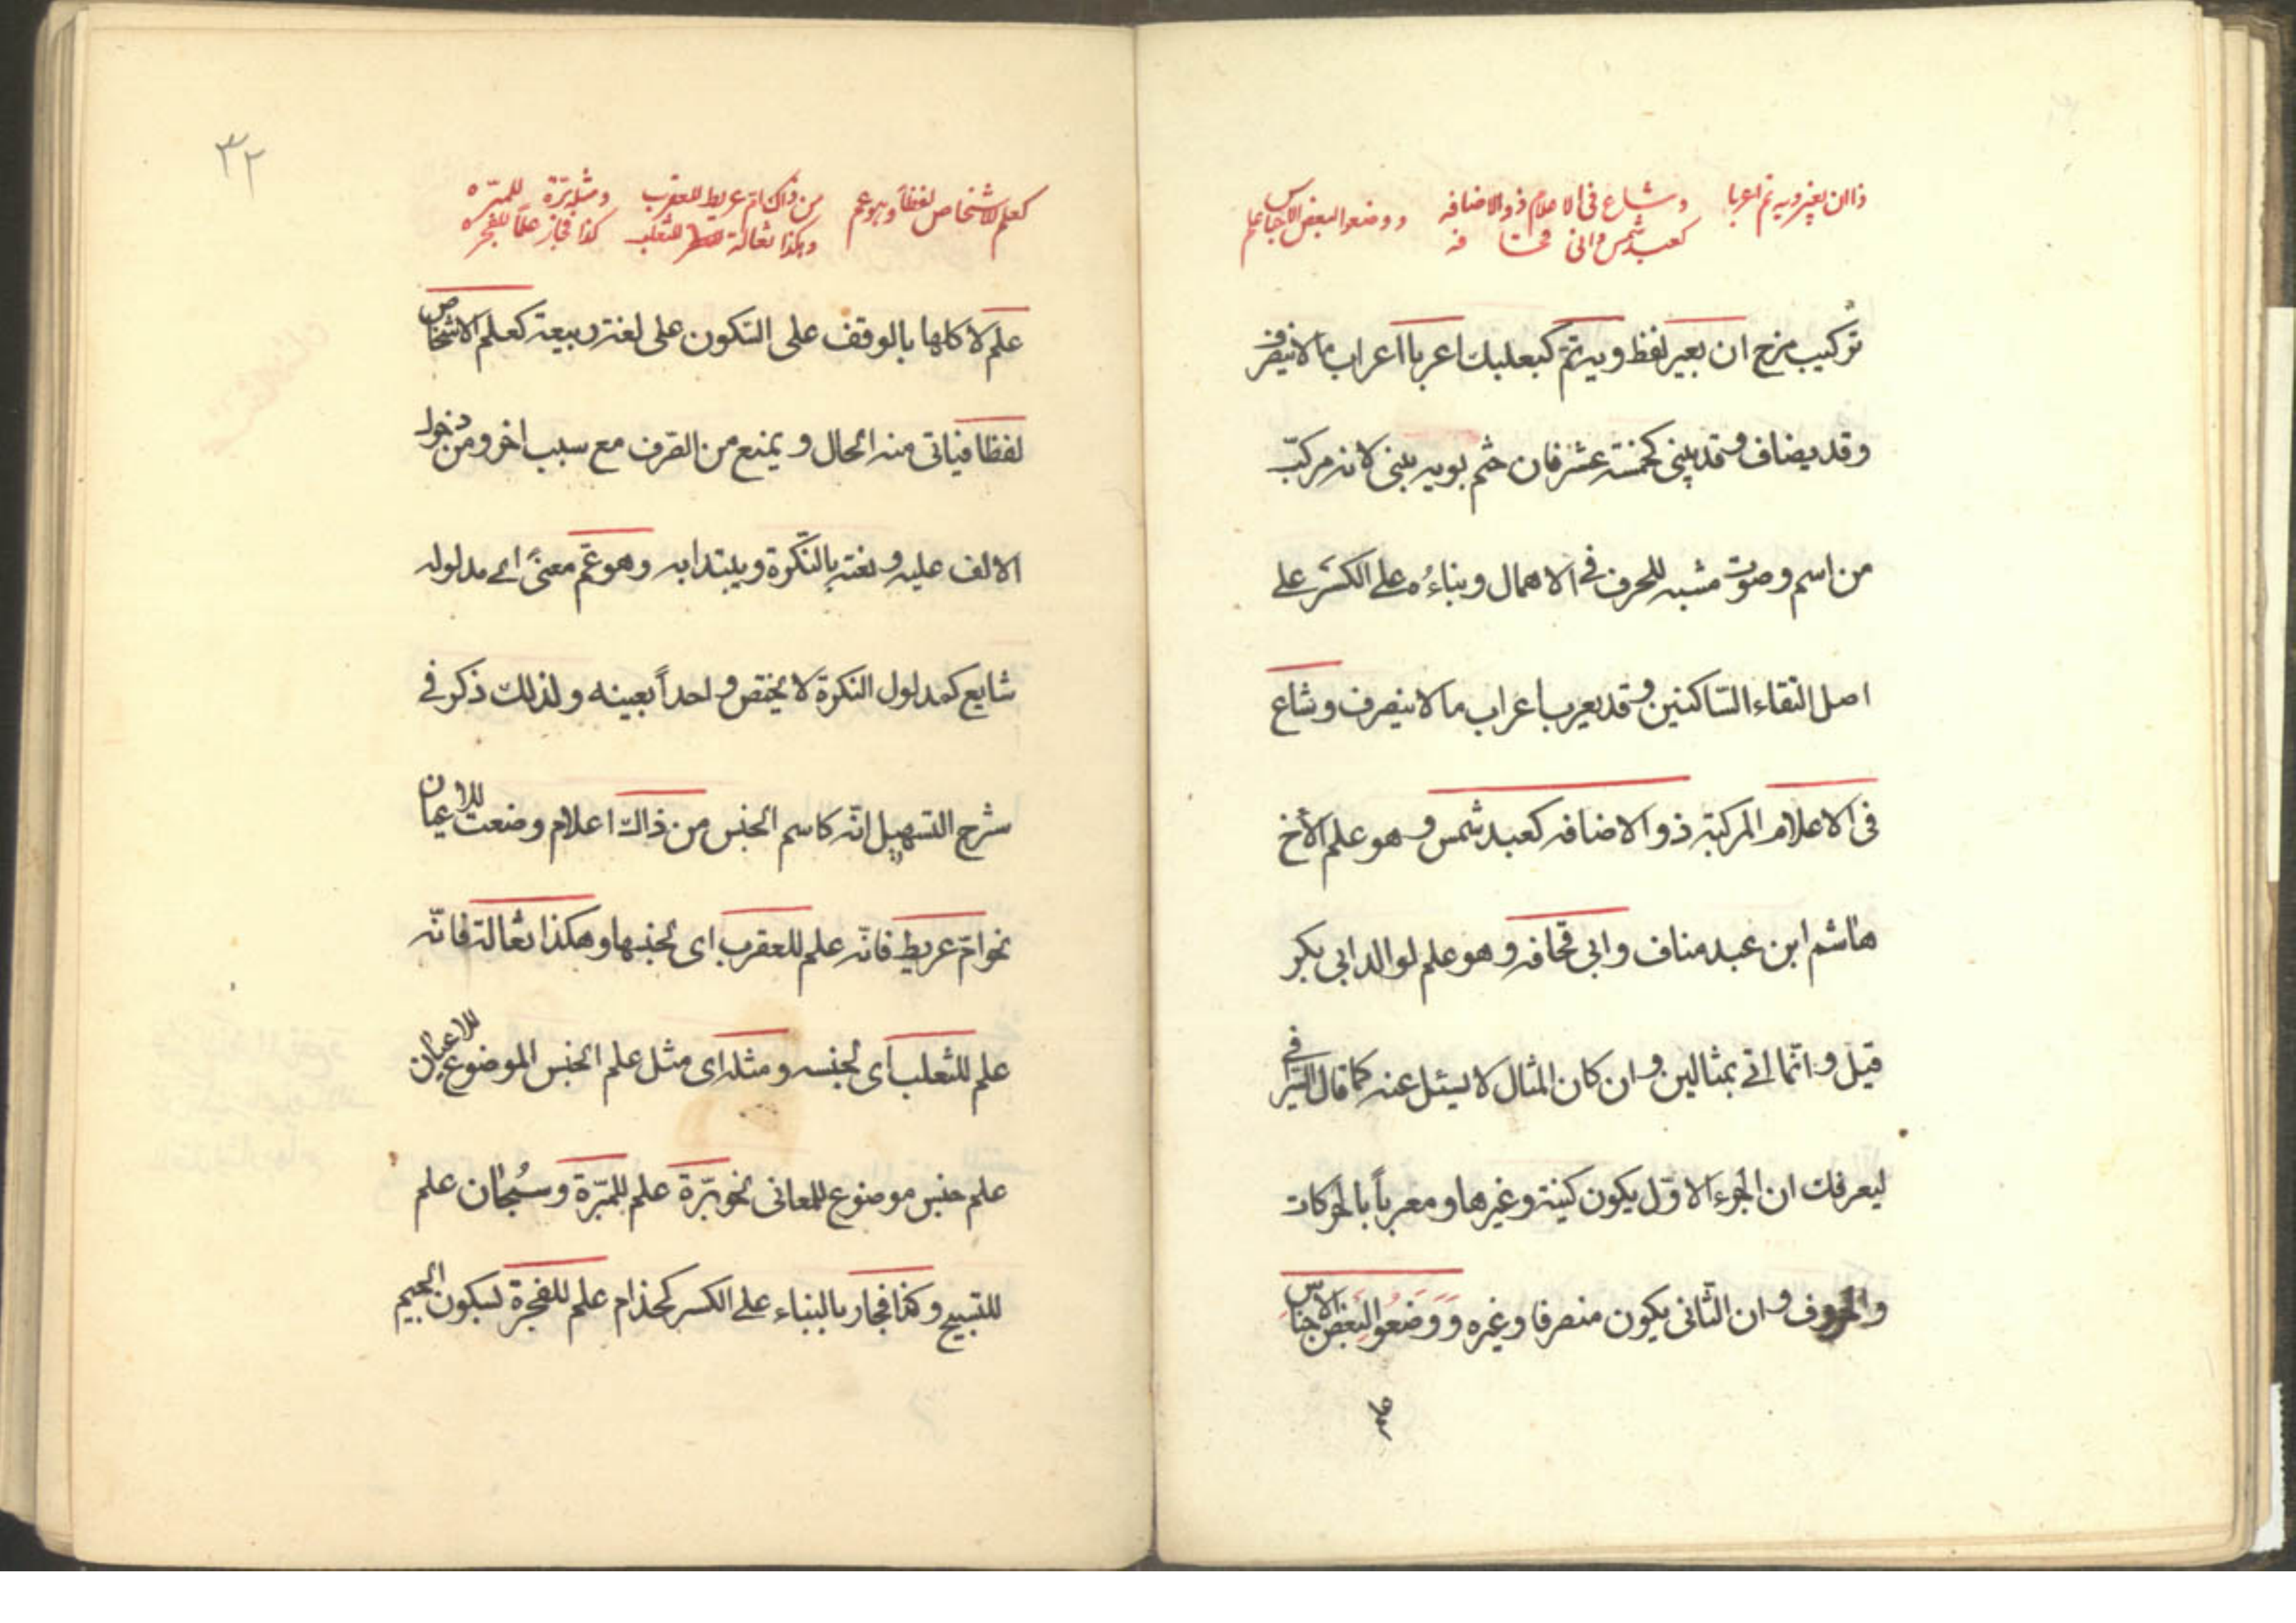 ذا ان بغير ويه تم اعربا وشاع فى الاعلام ذو الاضافه ووضعوا لبعض الاجناس علم
كعبد شمس وابى قحافه
تركيب مزج ان بغير لفظ ويه تمّ كبعلبك اعربا اعراب ما لا ينصرف
وقد يضاف وقد يبنى كخمسة عشر فان ختم بويه بنى لانه مركّب
من اسم وصوت مشبه للحرف فى الاهمال وبناءُه على الكسر على
اصل التقاء السّاكنين وقد يعرب اعراب ما لا ينصرف وشاع
فى الاعلام المركبة ذو الاضافه كعبد شمس وهو علم لأخ
هاشم ابن عبد مناف وابى قحافه وهو علم لوالد ابى بكر
قيل وانّما اتى بمثالين وان كان المثال لا يسئل عنه كما قال السّيرافى
ليعرفك ان الجزء الاوّل يكون كنية وغيرها ومعرباً بالحركات
والحروف وان الثّانى يكون منصرفا وغيره وَوَضَعُوا لبَعْضِ الاجناسِ
علم
٣٢
كعلم الاشخاص لفظاً وهو عم من ذاك ام عريط للعقرب ومثله برّة للمبرّه
وهكذا ثعالة للثعلب كذا فجار علماً للفجره
علم لا كلها بالوقف على السكون على لغة ربيعة كعلم الاشخاص
لفظا فياتى منه الحال و يمنع من الصّرف مع سبب اخر ومن دخول
الالف عليه ونعته بالنّكرة ويبتدا به وهو عمّ معنىً اى مدلوله
شايع كمدلول النكرة لا يختص واحداً بعينه ولذلك ذكر فى
شرح التسهيل انّه كاسم الجنس من ذاك اعلام وضعت للاعيان
نحو امّ عريط فانّه علم للعقرب اى لجنسها وهكذا ثعالة فانّه
علم للثعلب اى لجنسه ومثله اى مثل علم الجنس الموضوع للاعيان
علم جنس موضوع للمعانى نحو برّة علم للمبرّة وسُبحان علم
للتسبيح وكذا فجار بالبناء على الكسر كحذام علم للفجرة بسكون الجيم